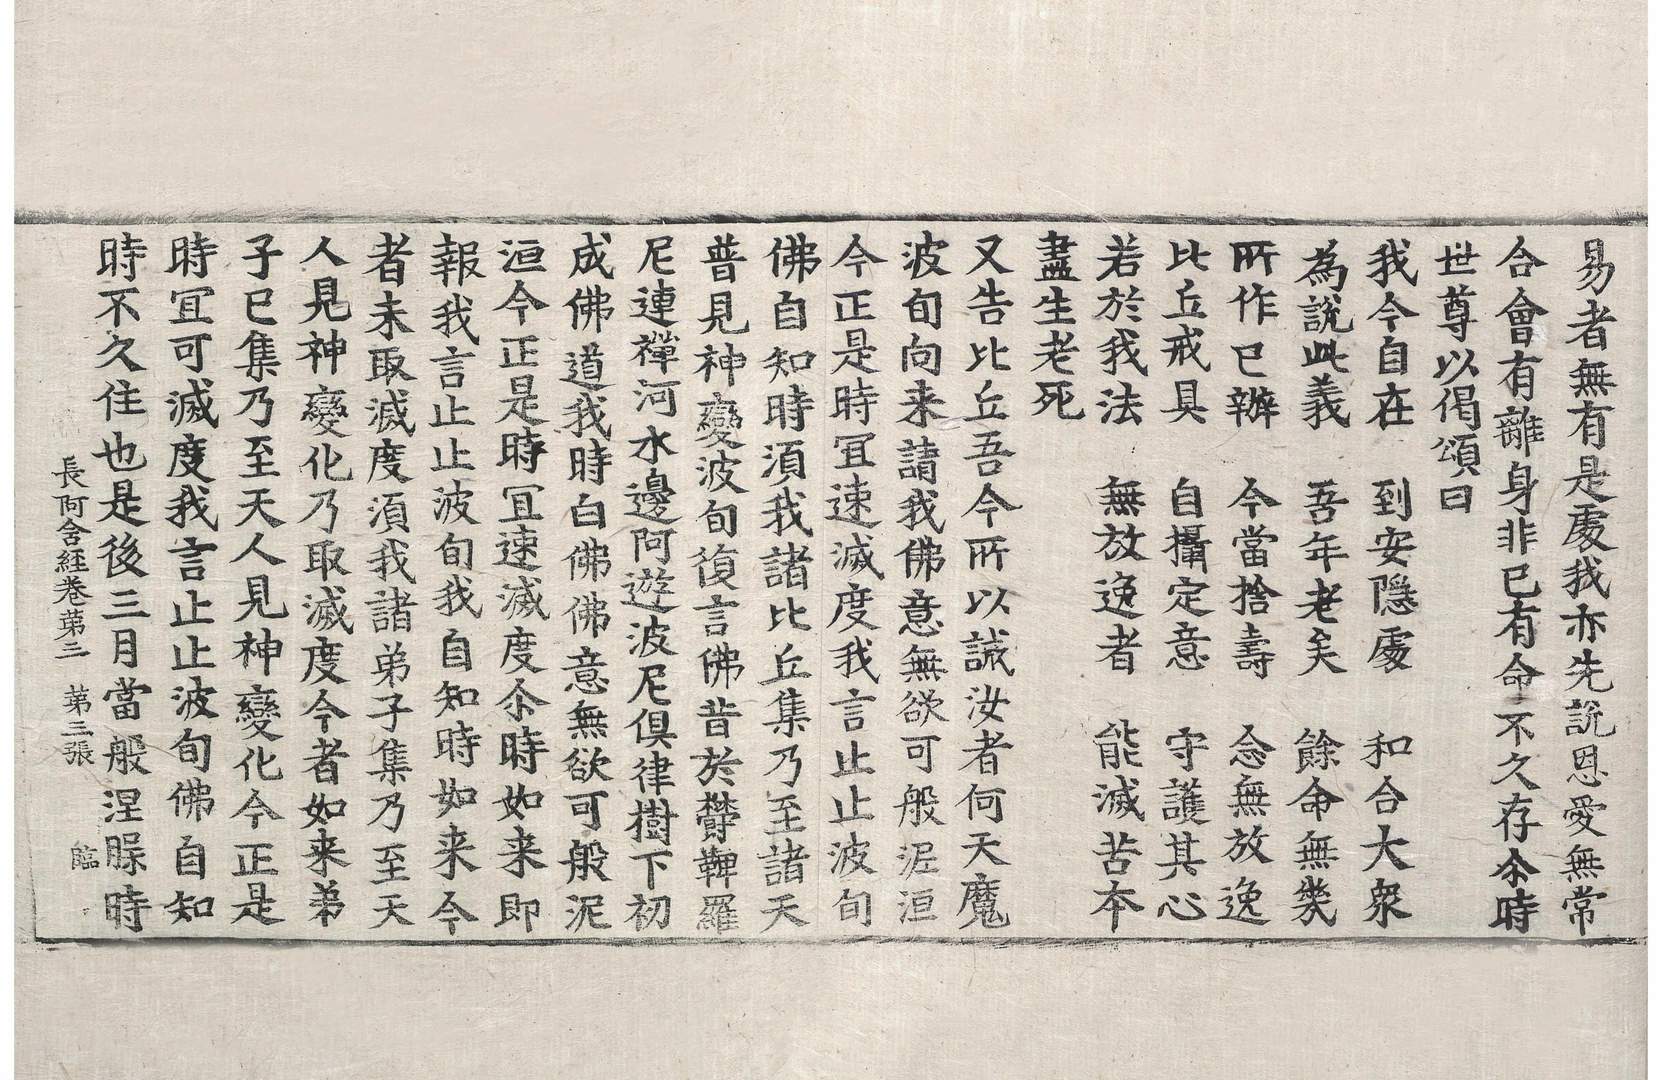 易者無有是處我亦先說恩愛無常
合會有離身非己有命不久存尒時
世尊以偈頌曰
我今自在 到安隱處 和合大衆
為說此義 吾年老矣 餘命無幾
所作已辦 今當捨壽 念無放逸
比丘戒具 自攝定意 守護其心
若於我法 無放逸者 能滅苦夲
盡生老死
又告比丘吾今所以誡汝者何天魔
波旬向来請我佛意無欲可般泥洹
今正是時冝速滅度我言止止波旬
佛自知時湏我諸比丘集乃至諸天
普見神變波旬復言佛昔於欝鞞羅
尼連禪河水邊阿遊波尼俱律樹下初
成佛道我時白佛佛意無欲可般泥
洹今正是時冝速滅度尒時如来即
報我言止止波旬我自知時如来今
者未取滅度湏我諸弟子集乃至天
人見神變化乃取滅度今者如来弟
子已集乃至天人見神變化今正是
時冝可滅度我言止止波旬佛自知
時不久住也是後三月當般涅槃時
長阿含経卷苐三 苐三張